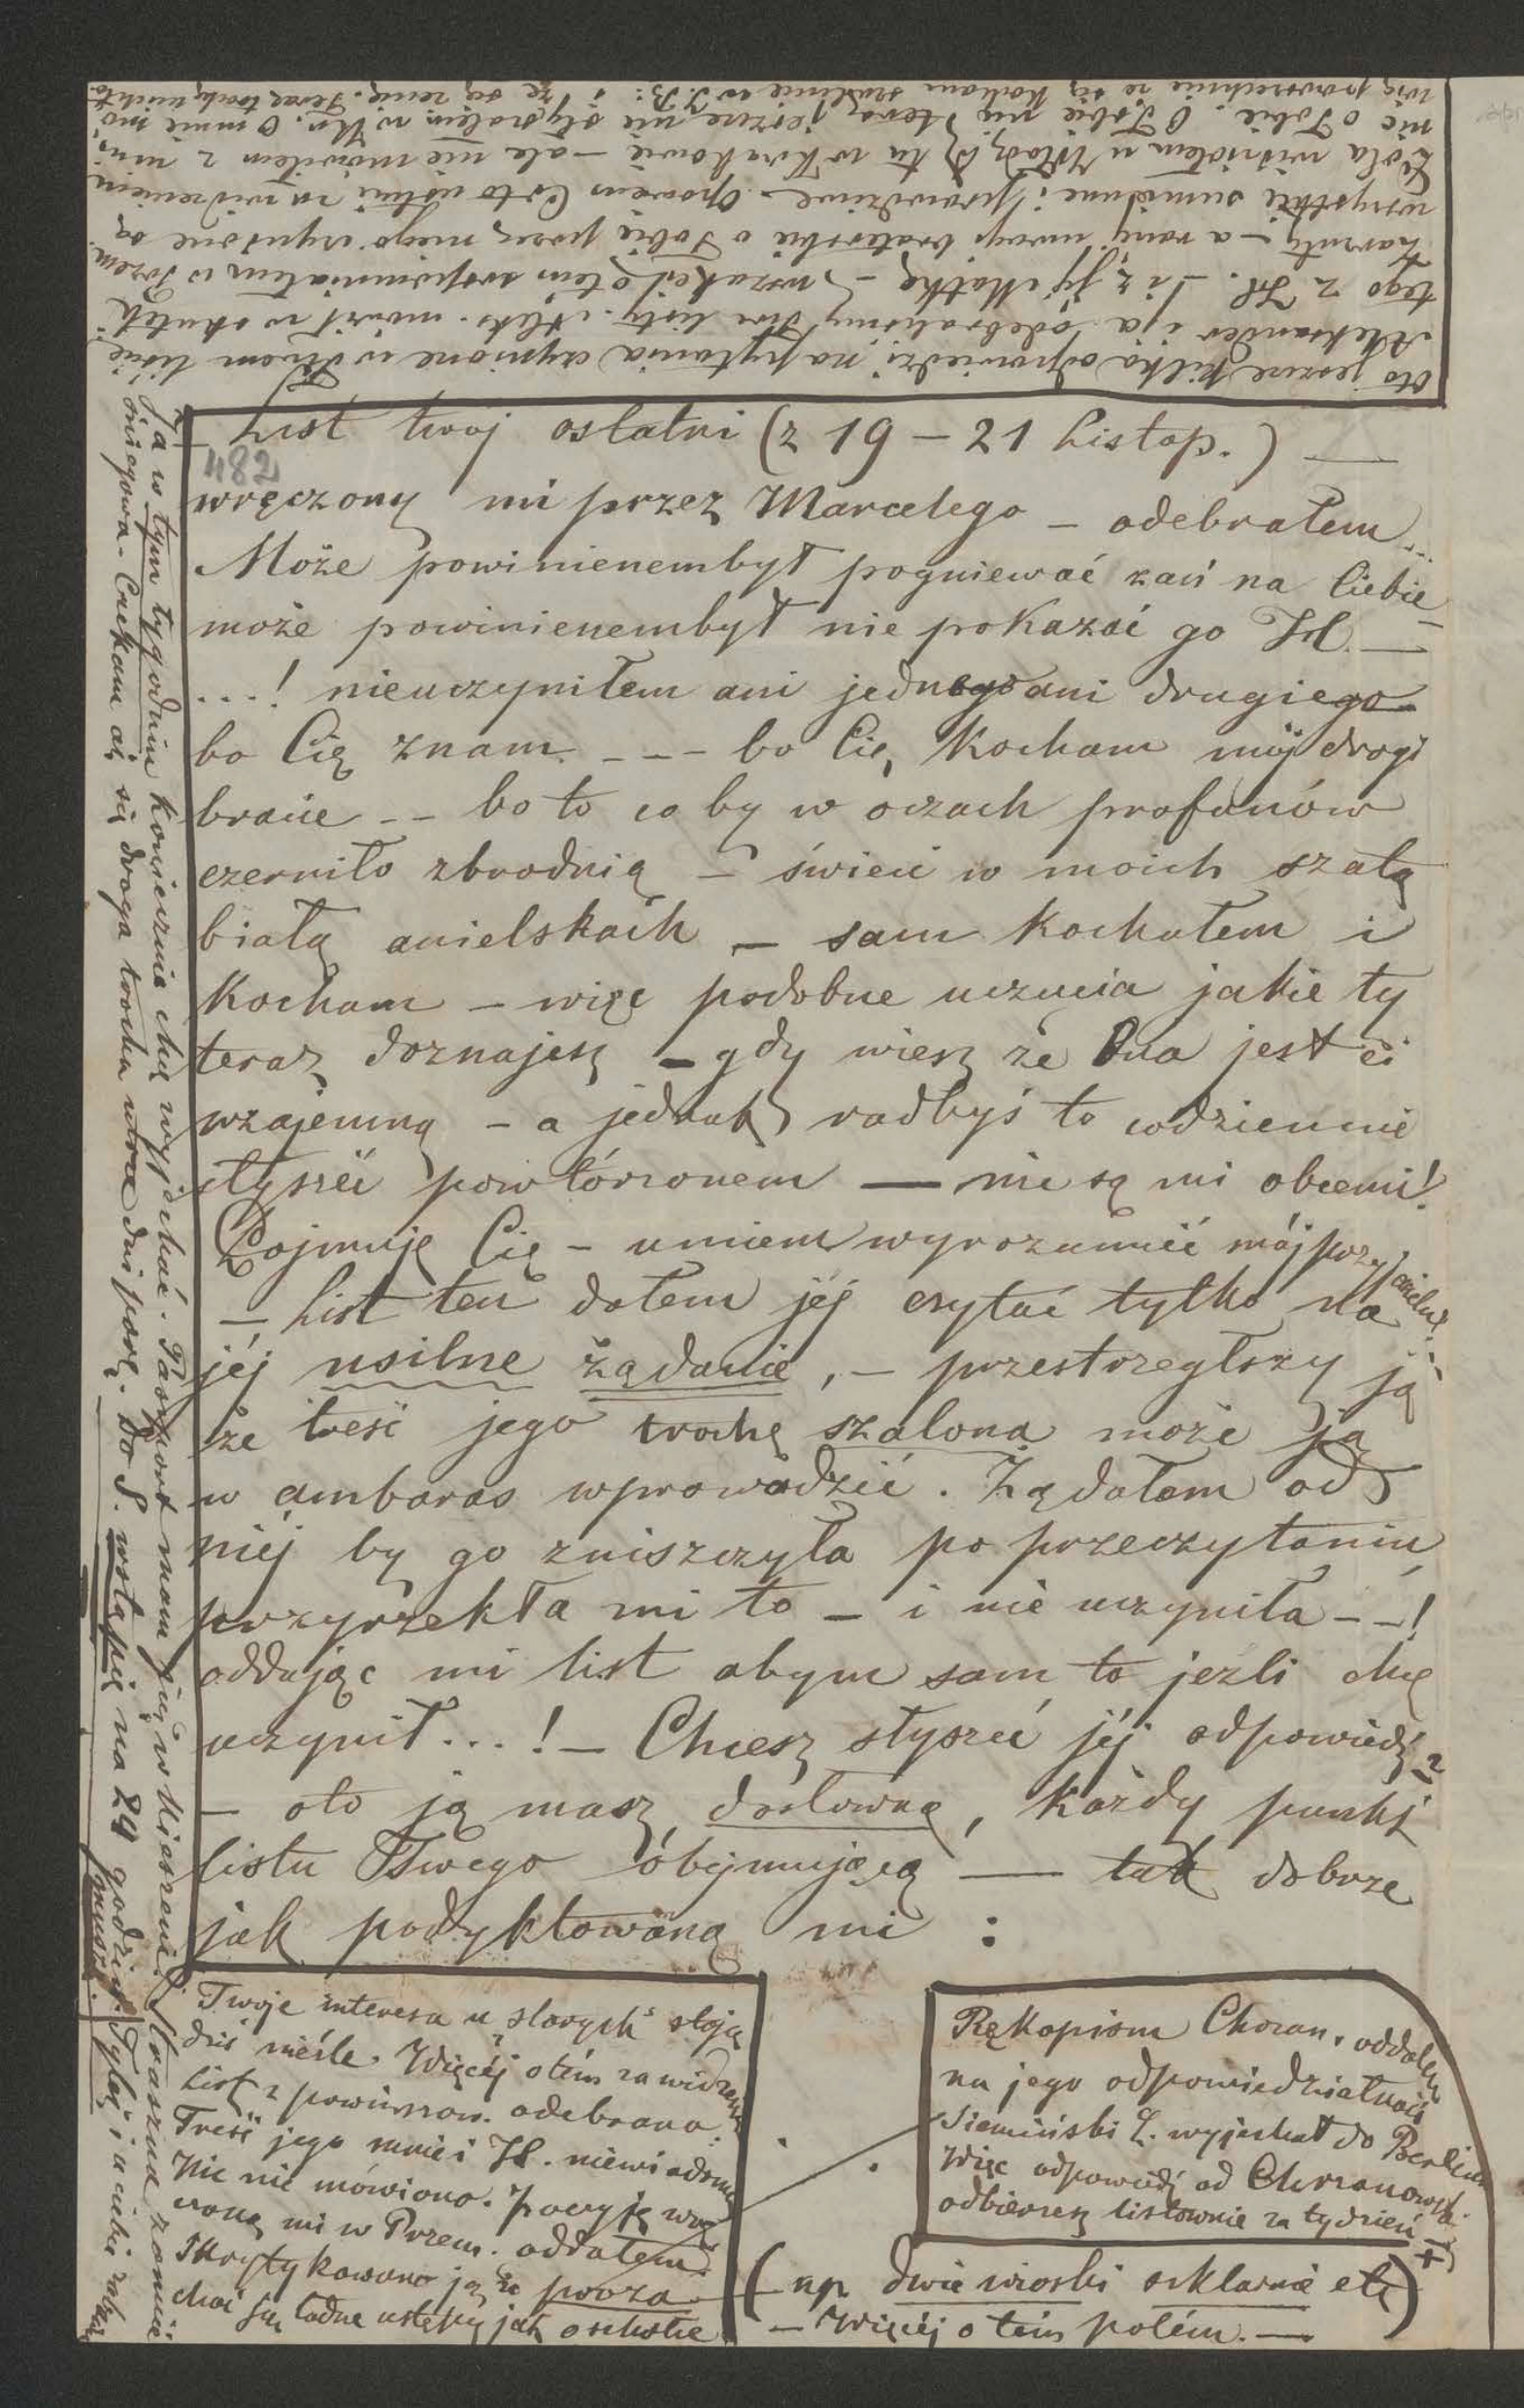 Oto jeszcze kilka odpowiedzi na pytania czynione w Twem liście
Aleksander i ja odebraliśmy Twe listy. Aleks. mówił w skutek
tego z Hl. i z Jej Matką – wszakeś o tém wspomniałem w Przem.
zarzuty – a rany braterskie o Tobie przez niego czynione są
wszystkie sumienne i prawdziwe. Opowiem Ci to ustnie za widzeniem
widziałem u Władzi tu w Krakowie – ale nie mówiłem z nim
nic o Tobie. O Tobie nic teraz jeszcze nie słyszałem w Kr. O mnie mó-
wią powszechnie że się kocham szalenie w J. B: i że się żenię. Teraz trochę ucichło
– List twoj ostatni (z 19 – 21 Listop.) —
482
wręczony mi przez Marcelego – odebrałem...
Może powinienembył pogniewać zań na Ciebie –
może powinienembył nie pokazać go Hl. —
...! nieuczyniłem ani jednego ani drugiego
bo Cię znam – – – bo Cię kocham mój drogi
bracie – – bo to co by w oczach profanów
czerniło zbrodnią – świeci w moich szatą
białą anielskach – sam kochałem i
kocham – więc podobne uczucia jakie ty
teraz doznajesz – gdy wiesz że Ona jest ci
wzajemną – a jednak radbyś to codziennie
słyszeć powtórzonem — nie są mi obcemi!
Pojmuję Cię – umiem wyrozumieć mój przyjacielu!
– List ten dałem jéj czytać tylko na
jéj usilne żądanie, – przestrzegłszy ją
że treść jego trochę szalona może ją
w ambaras wprowadzić. Żądałem od
niéj by go zniszczyła po przeczytaniu,
przyrzekła mi to – i nie uczyniła – –!
oddając mi list abym sam to jeźli chcę
uczynił...! – Chcesz słyszeć jéj odpowiedź?
– oto ją masz, dosłowną, każdy punkt
listu Twego obejmującą — tak dobrze
jak podyktowaną mi :
Twoje interesa u "starych" stoją
dziś nieźle. Więcéj o tém za widzeniem
List z powinszow. odebrano.
Treść jego mnie i Hl. niewiadoma
Nic nie mówiono. Poezyję wrę-
czoną mi w Przem. oddałem.
Skrytykowano ją że proza
choć są ładne ustępy jak
Rękopism Chrzan. oddałem
na jego odpowiedzialność
Siemiński L. wyjechał do Berlina
Więc odpowiedź od Chrzanowsk.
odbierzesz listownie za tydzień –
(np. dwie wioski szklarnie etc)
– Więcéj o tém potém. —
Ja w tym tygodniu koniecznie chcę wyjechać. Paszport mam już w kieszeni. Straszna zamieć
śniegowa – Czekam aż się droga trochę utrze dni parę. Do S. wstąpię na 24 godzin. Tyle i u ciebie zabawię
muszę.